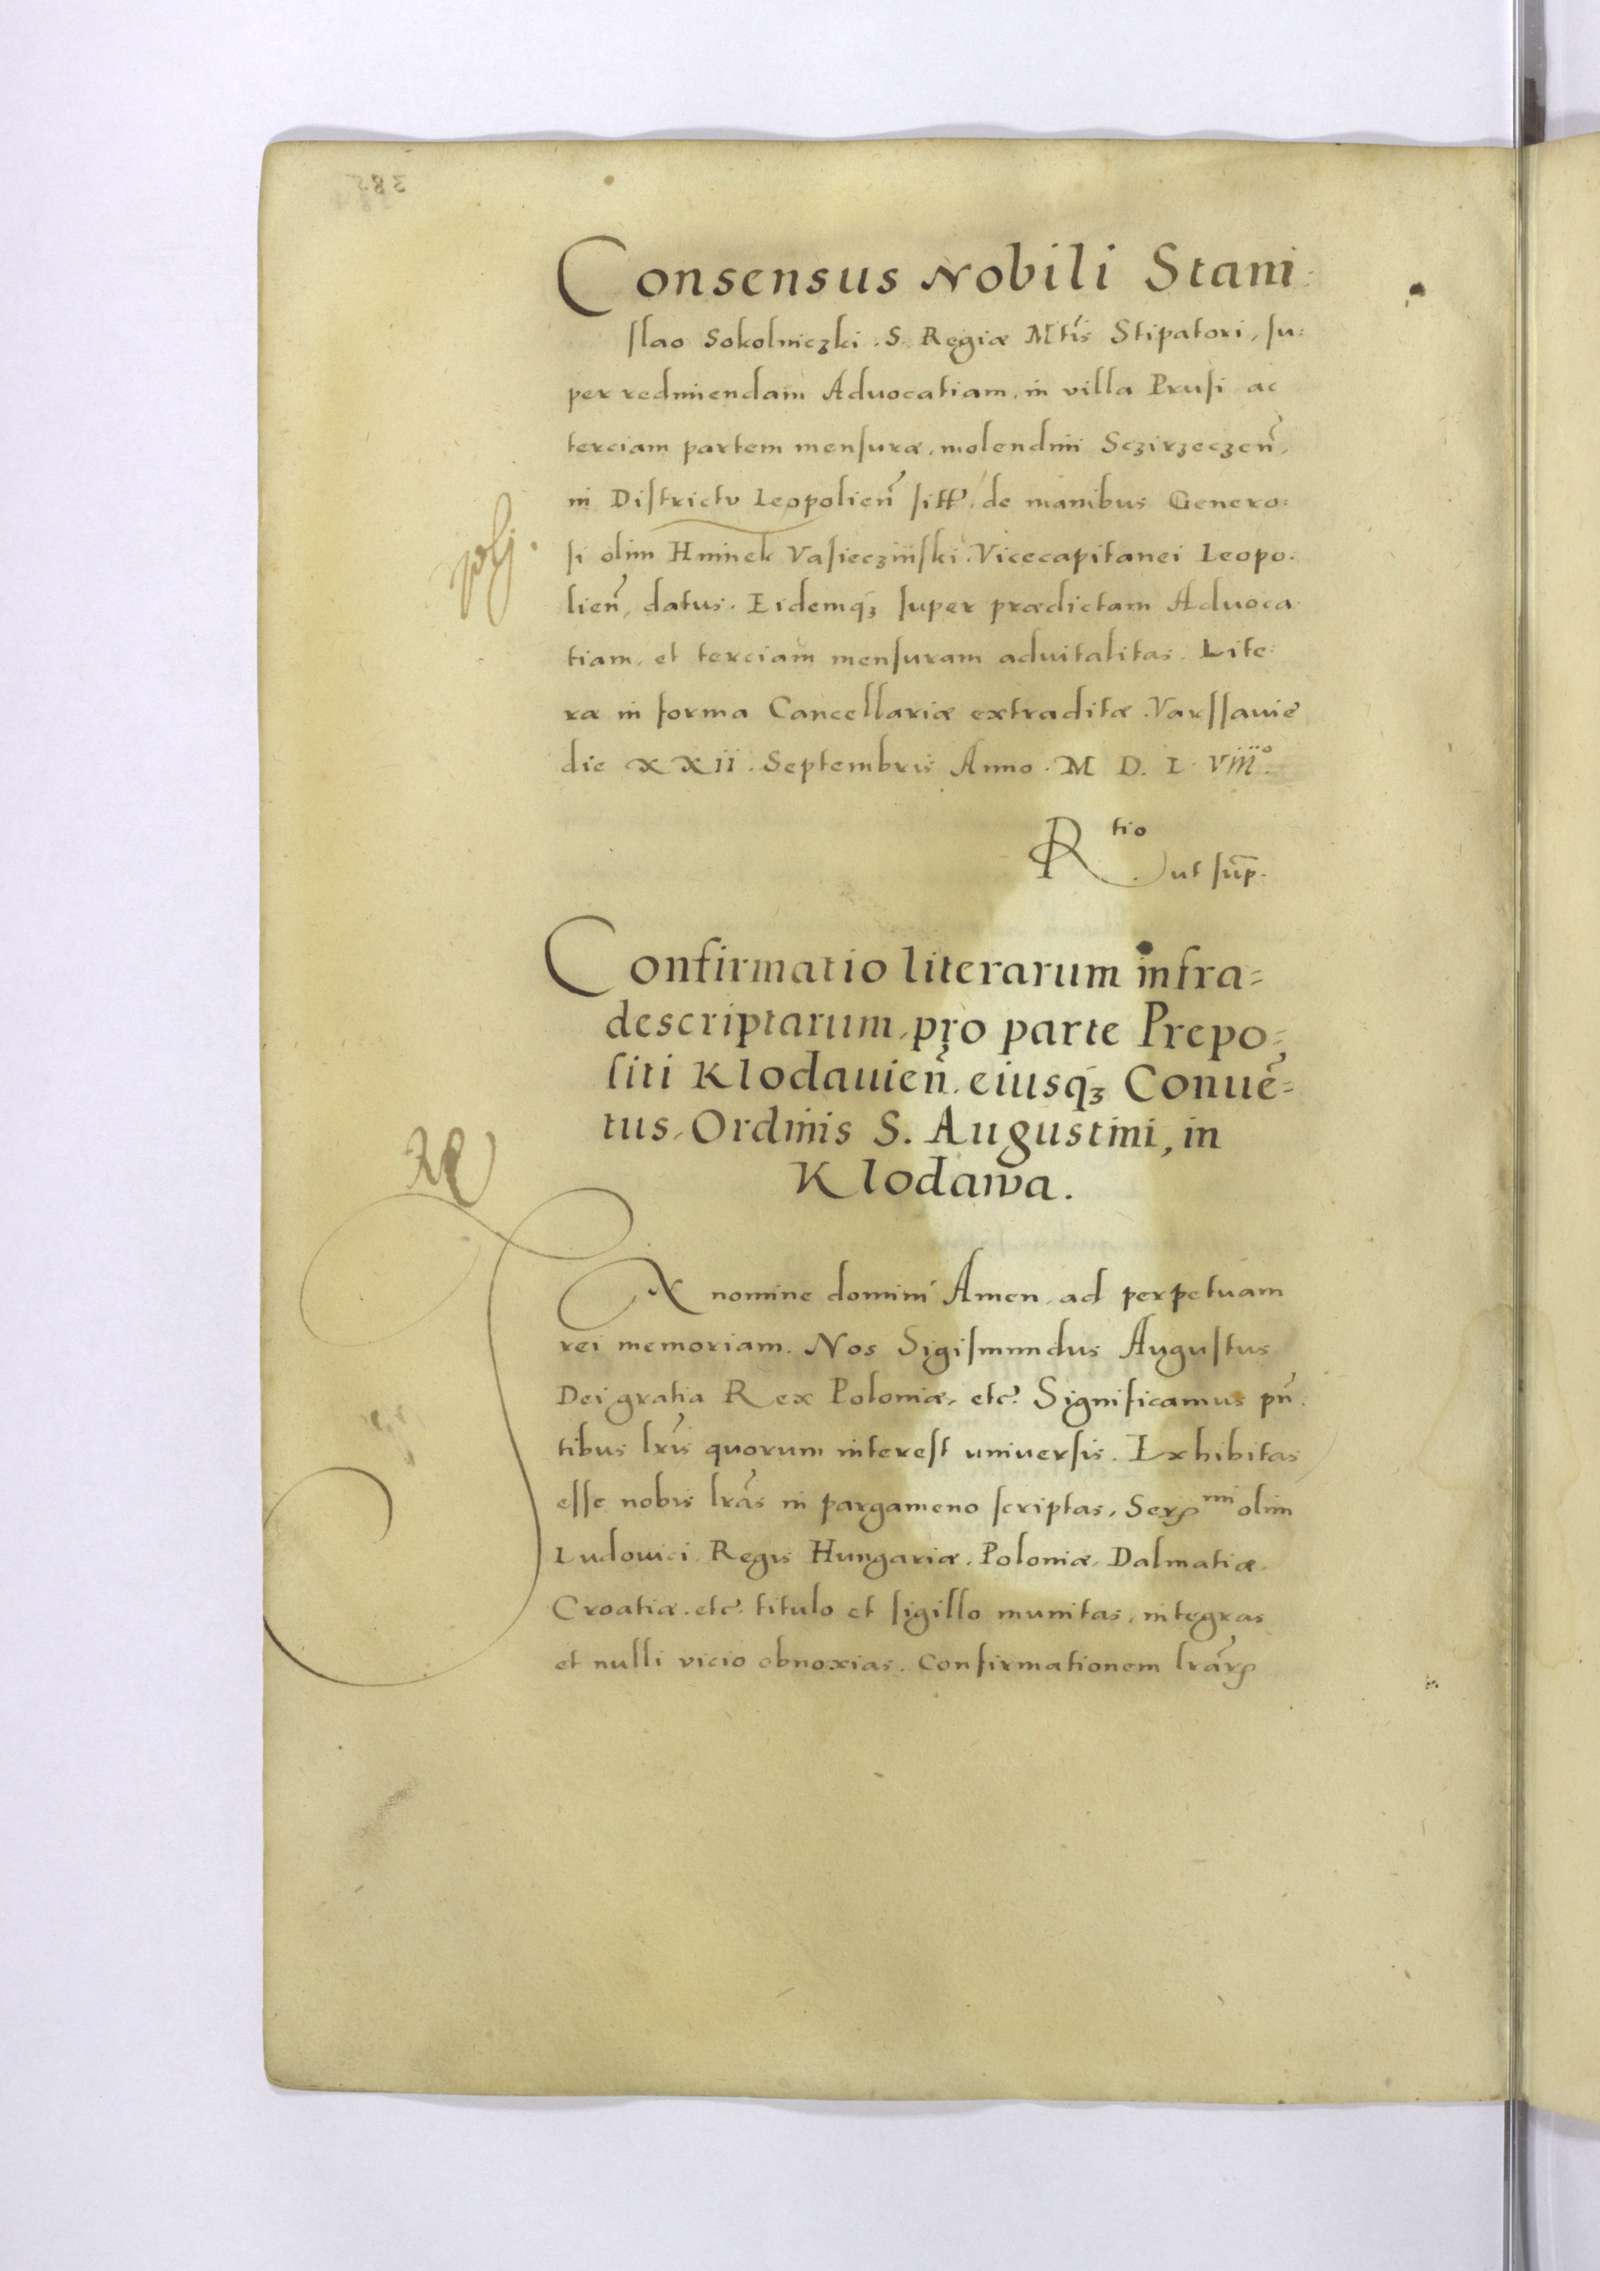 Consensus Nobili Stani:
slao Sokolniczki. S. Regiæ Mtis Stipatori, su:
per redimendam Aduocatiam, in villa Prusi ac
terciam partem mensuræ, molendini Sczirzeczen̄,
in Districtu Leopolien̄ sitt, de manibus Genero:
si olim Hminek Vasieczinski. Vicecapitanei Leopo.
lien̄, datus. Eidemqꝫ super prædictam Aduoca
tiam, et terciam mensuram aduitalitas. Lite:
ræ in forma Cancellariæ extraditæ. Varssauie
die XXII. Septembris Anno. M D. L. Viiiº.
Rtio
ut sup̄.
Confirmatio literarum infra=
descriptarum, pro parte Prepo=
siti Klodauien̄. eiusqꝫ Conuē=
tus, Ordinis S. Augustini, in
Klodawa.
In nomine domini Amen, ad perpetuam
rei memoriam. Nos Sigismundus Augustus
Dei gratia Rex Poloniæ, etc. Significamus pn̄.
tibus lris quorum interest uniuersis. Exhibitas
esse nobis lras in pargameno scriptas, Serꝭmi olim
Ludouici Regis Hungariæ, Poloniæ, Dalmatiæ.
Croatiæ. etc. titulo et sigillo munitas, integras
et nulli vicio obnoxias. Confirmationem lrarꝭ